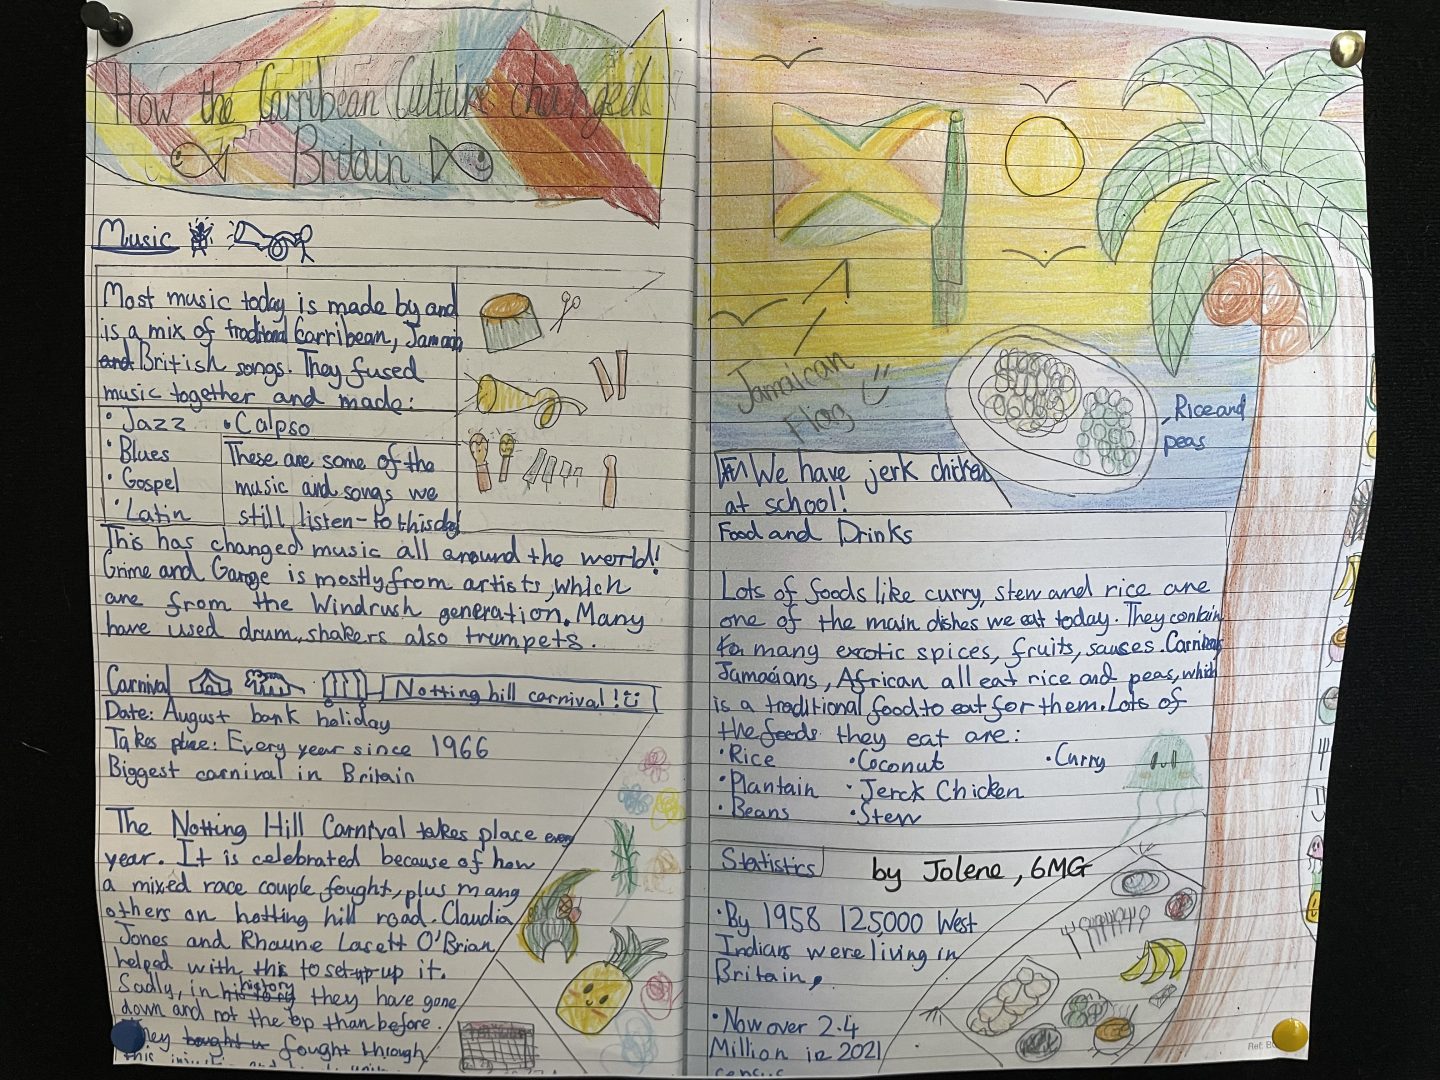 How the Carribean Culture changed
Britain
Music
Most music today is made by and
is a mix of traditional Carribean, Jamacin
and British songs. They fused
music together and made:
· Jazz
· Blues
· Gospel
· Latin
· Calpso
These are some of the
music and songs we
still listen-to this day
This has changed music all around the world!
Grime and Garage is mostly from artists, which
are from the Windrush generation. Many
have used drum, shakers also trumpets.
Carnival
Notting hill carnival!
Date: August bank holiday
Takes place: Every year since 1966
Biggest carnival in Britain
The Notting Hill Carnival takes place every
year. It is celebrated because of how
a mixed race couple fought, plus many
others on hotting hill road. Claudia
Jones and Rhaune Lasett O'Brian
helped with this to set-up up it.
Sadly, in history they have gone
down and not the op than before.
They bought u fought through
this
Jamaican
Flag
Rice and
peas
We have jerk chicken
at school!
Food and Drinks
Lots of foods like curry, stew and rice are
one of the main dishes we eat today. They contain
many excotic spices, fruits, sauses.
Jamacians, African all eat rice and peas, which
is a traditional food to eat for them. Lots of
the foods they eat are:
· Rice
· Plantain
· Beans
· Coconut
· Jerck Chicken
· Stew
· Curry
Statistics
by Jolene, 6MG
· By 1958 125,000 West
Indians were living in
Britain,
· Now over 2.4
Million in 2021
census